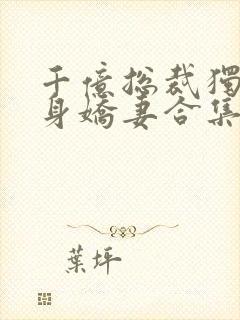 千億总裁獨
身嬌妻合集
葉坪